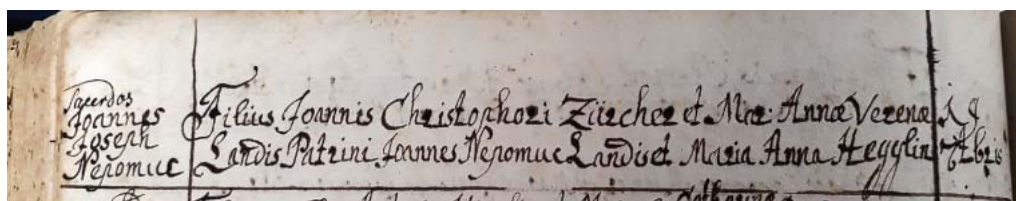 Sacerdos
Joannes
Joseph
Nepomuc
Filius Joannis Christophori Zürcher et Mar: Annæ Verenæ
Landis Patrini Joannes Nepomuc Landis et Maria Anna Hegglin
Catharina